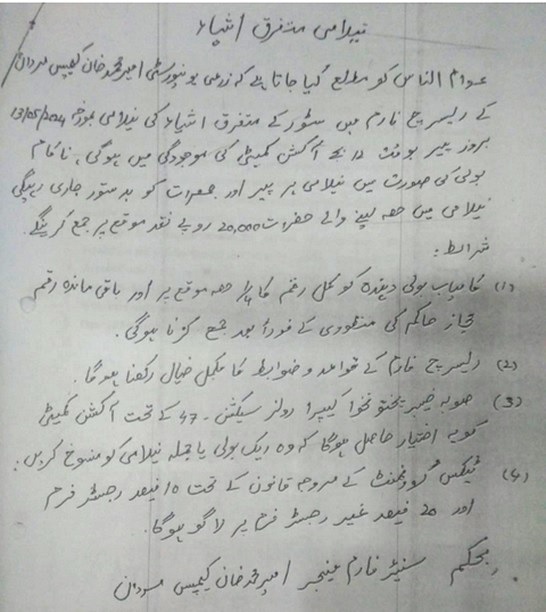 نیلامی متفرق اشیاء
عوام الناس کو مطلع کیا جاتا ہے کہ زرعی یونیورسٹی امیر محمد خان کیمپس مردان
کے ریسرچ فارم میں سٹور کے متفرق اشیاء کی نیلامی بمورخہ 13/05/2024
بروز پیر بوقت 12 بجے آکشن کمیٹی کی موجودگی میں ہوگی، ناکام
بولی کی صورت میں نیلامی ہر پیر اور جمعرات کو بدستور جاری رہیگی
نیلامی میں حصہ لینے والے حضرات 20,000 روپے نقد موقع پر جمع کرینگے۔
شرائط:
(1) کامیاب بولی دہندہ کو کل رقم کا 1/4 حصہ موقع پر اور باقی ماندہ رقم
مجاز حاکم کی منظوری کے فوراً بعد جمع کرنا ہوگی۔
(2) ریسرچ فارم کے قواعد و ضوابط کا مکمل خیال رکھنا ہوگا۔
(3) صوبہ خیبر پختونخوا کیپرا رولز سیکشن - 47 کے تحت آکشن کمیٹی
کو یہ اختیار حاصل ہوگا کہ وہ ایک بولی یا جملہ نیلامی کو منسوخ کریں۔
(4) ٹیکس گورنمنٹ کے مروجہ قانون کے تحت 10 فیصد رجسٹر فرم
اور 20 فیصد غیر رجسٹر فرم پر لاگو ہوگا۔
بحکم سنیئر فارم مینیجر امیر محمد خان کیمپس مردان